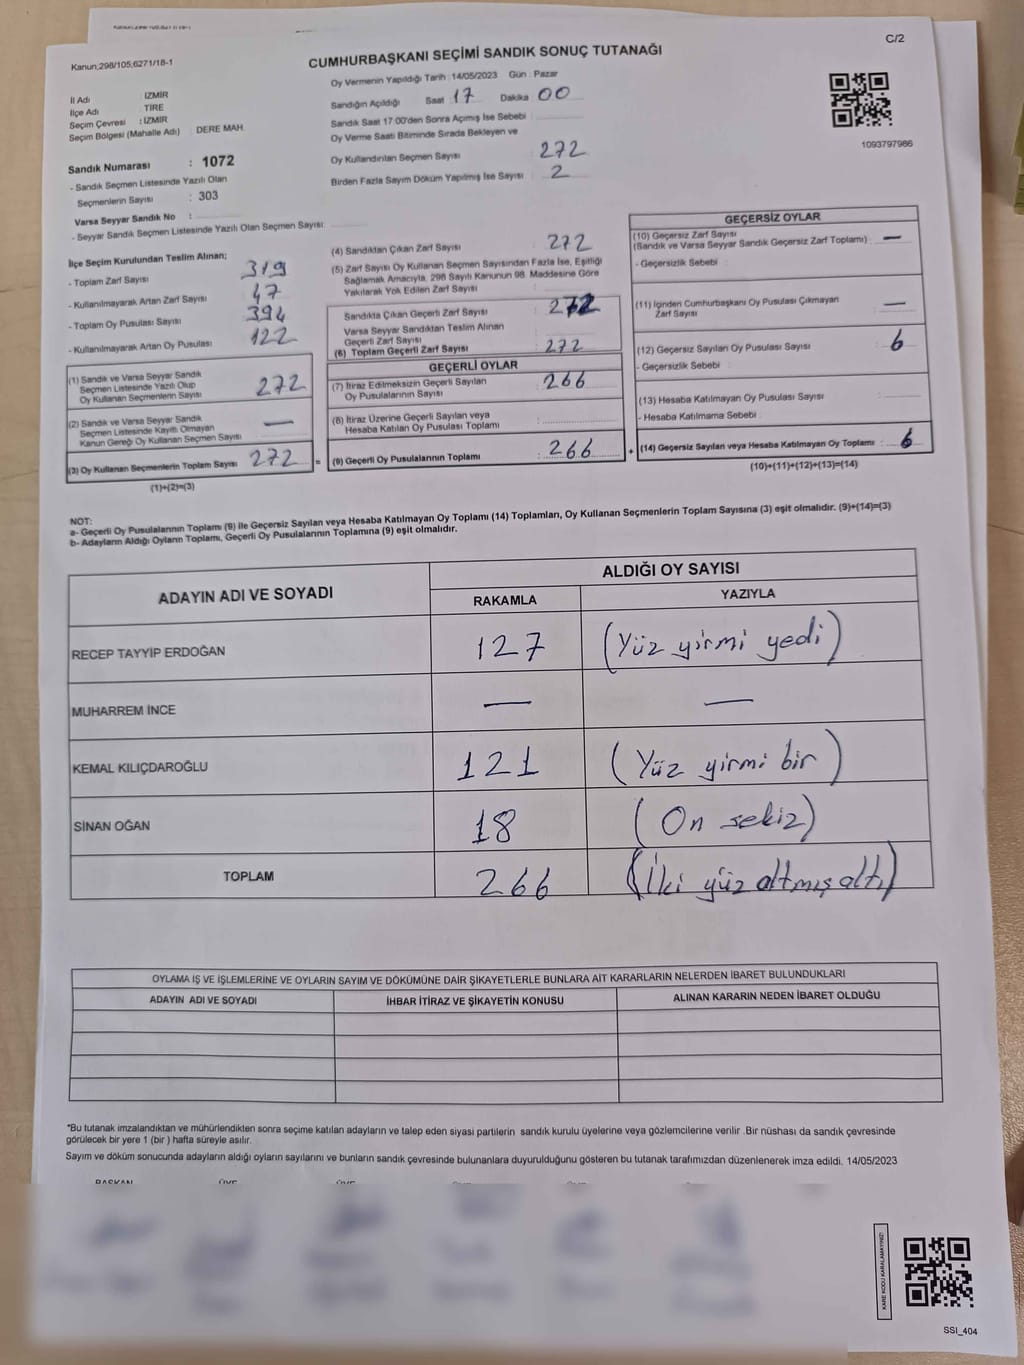 C/2
Kanun;298/105,6271/18-1
CUMHURBAŞKANI SEÇİMİ SANDIK SONUÇ TUTANAĞI
Oy Vermenin Yapıldığı Tarih : 14/05/2023 Gün : Pazar
İl Adı : İZMİR
İlçe Adı : TİRE
Seçim Çevresi : İZMİR
Seçim Bölgesi (Mahalle Adı) : DERE MAH.
Sandığın Açıldığı Saat 17 Dakika 00
Sandık Saat 17.00'den Sonra Açımış İse Sebebi :
Oy Verme Saati Bitiminde Sırada Bekleyen ve
Oy Kullandırılan Seçmen Sayısı : 272
Birden Fazla Sayım Döküm Yapılmış İse Sayısı : 2
1093797986
Sandık Numarası : 1072
- Sandık Seçmen Listesinde Yazılı Olan
Seçmenlerin Sayısı : 303
Varsa Seyyar Sandık No :
- Seyyar Sandık Seçmen Listesinde Yazılı Olan Seçmen Sayısı:
İlçe Seçim Kurulundan Teslim Alınan;
- Toplam Zarf Sayısı : 319
- Kullanılmayarak Artan Zarf Sayısı : 47
- Toplam Oy Pusulası Sayısı : 394
- Kullanılmayarak Artan Oy Pusulası : 122
(1) Sandık ve Varsa Seyyar Sandık
Seçmen Listesinde Yazılı Olup
Oy Kullanan Seçmenlerin Sayısı : 272
(2) Sandık ve Varsa Seyyar Sandık
Seçmen Listesinde Kayıtlı Olmayan
Kanun Gereği Oy Kullanan Seçmen Sayısı : —
(3) Oy Kullanan Seçmenlerin Toplam Sayısı : 272 =
(1)+(2)=(3)
(4) Sandıktan Çıkan Zarf Sayısı : 272
(5) Zarf Sayısı Oy Kullanan Seçmen Sayısından Fazla İse, Eşitliği
Sağlamak Amacıyla, 298 Sayılı Kanunun 98. Maddesine Göre
Yakılarak Yok Edilen Zarf Sayısı :
Sandıkta Çıkan Geçerli Zarf Sayısı : 272
Varsa Seyyar Sandıktan Teslim Alınan
Geçerli Zarf Sayısı :
(6) Toplam Geçerli Zarf Sayısı : 272
GEÇERLİ OYLAR
(7) İtiraz Edilmeksizin Geçerli Sayılan
Oy Pusulalarının Sayısı : 266
(8) İtiraz Üzerine Geçerli Sayılan veya
Hesaba Katılan Oy Pusulası Toplamı :
(9) Geçerli Oy Pusulalarının Toplamı : 266 +
GEÇERSİZ OYLAR
(10) Geçersiz Zarf Sayısı
(Sandık ve Varsa Seyyar Sandık Geçersiz Zarf Toplamı) : —
- Geçersizlik Sebebi :
(11) İçinden Cumhurbaşkanı Oy Pusulası Çıkmayan
Zarf Sayısı : —
(12) Geçersiz Sayılan Oy Pusulası Sayısı : 6
- Geçersizlik Sebebi :
(13) Hesaba Katılmayan Oy Pusulası Sayısı :
- Hesaba Katılmama Sebebi :
(14) Geçersiz Sayılan veya Hesaba Katılmayan Oy Toplamı : 6
(10)+(11)+(12)+(13)=(14)
NOT:
a- Geçerli Oy Pusulalarının Toplamı (9) ile Geçersiz Sayılan veya Hesaba Katılmayan Oy Toplamı (14) Toplamları, Oy Kullanan Seçmenlerin Toplam Sayısına (3) eşit olmalıdır. (9)+(14)=(3)
b- Adayların Aldığı Oyların Toplamı, Geçerli Oy Pusulalarının Toplamına (9) eşit olmalıdır.
ADAYIN ADI VE SOYADI ALDIĞI OY SAYISI
RAKAMLA YAZIYLA
RECEP TAYYİP ERDOĞAN 127 (Yüz yirmi yedi)
MUHARREM İNCE — —
KEMAL KILIÇDAROĞLU 121 (Yüz yirmi bir)
SİNAN OĞAN 18 (On sekiz)
TOPLAM 266 (İki yüz altmış altı)
OYLAMA İŞ VE İŞLEMLERİNE VE OYLARIN SAYIM VE DÖKÜMÜNE DAİR ŞİKAYETLERLE BUNLARA AİT KARARLARIN NELERDEN İBARET BULUNDUKLARI
ADAYIN ADI VE SOYADI İHBAR İTİRAZ VE ŞİKAYETİN KONUSU ALINAN KARARIN NEDEN İBARET OLDUĞU
*Bu tutanak imzalandıktan ve mühürlendikten sonra seçime katılan adayların ve talep eden siyasi partilerin sandık kurulu üyelerine veya gözlemcilerine verilir .Bir nüshası da sandık çevresinde
görülecek bir yere 1 (bir ) hafta süreyle asılır.
Sayım ve döküm sonucunda adayların aldığı oyların sayılarını ve bunların sandık çevresinde bulunanlara duyurulduğunu gösteren bu tutanak tarafımızdan düzenlenerek imza edildi. 14/05/2023
BAŞKAN ÜYE ÜYE
KARE KODU KARALAMAYINIZ!
SSI_404